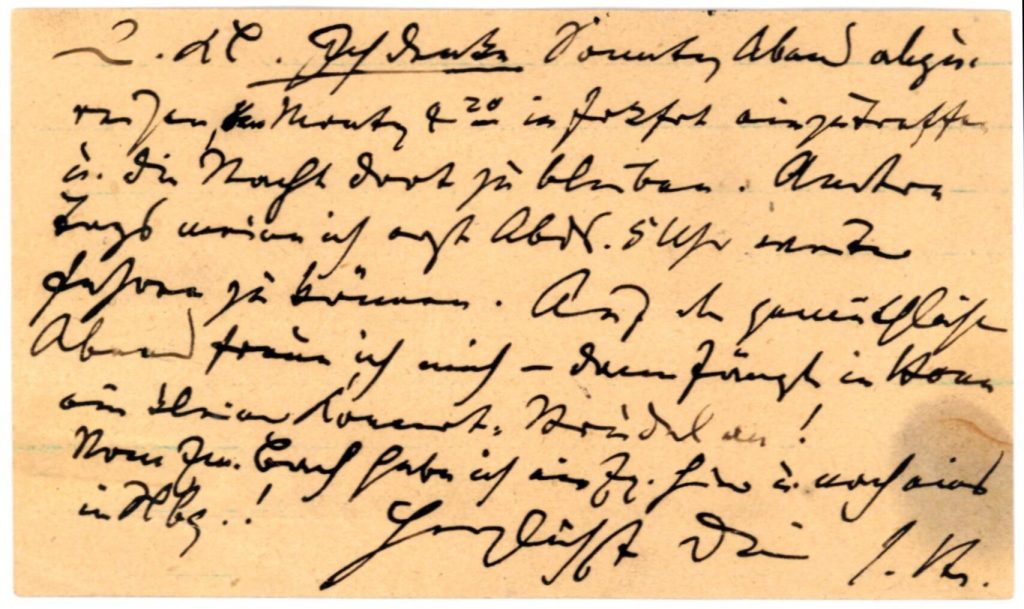 L. Cl. Ich denke Sonntag Abend abzu-
reisen, Montag 8 20 in Frkfrt einzutreffen
u. die Nacht dort zu bleiben. Andern
Tags meine ich erst Abds. 5 Uhr weiter
fahren zu können. Auf den gemüthlichen
Abend freue ich mich — dann fängt in Bonn
ein kleiner Concert-Strudel an!
Vom Bach habe ich ein Ex. hier u. noch eins
in Hbg..!
Herzlichst Dein J. Br.